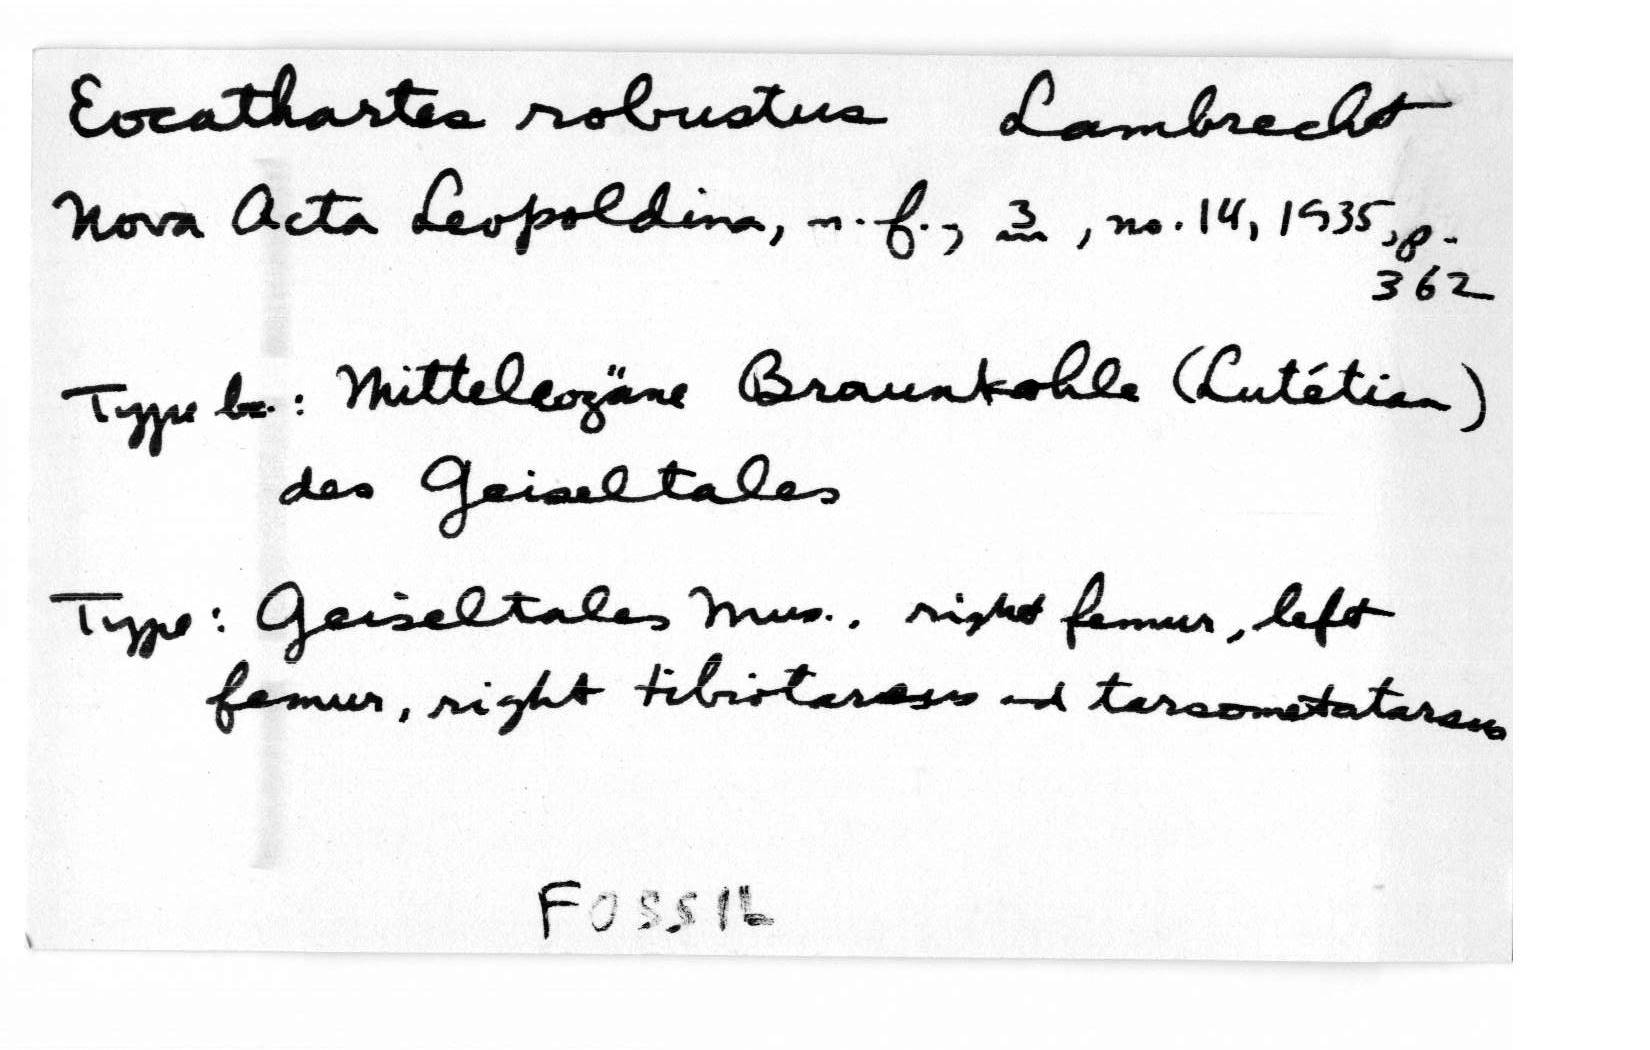 Eocathartes robustus Lambrecht
Nova Acta Leopoldina, n.f., 3, no. 14, 1935, p.
362
Type loc.: Mitteleozäne Braunkohle (Lutétien)
des Geiseltales
Type: Geiseltales Mus.. right femur, left
femur, right tibiotarsus and tarsometatarsus
FOSSIL